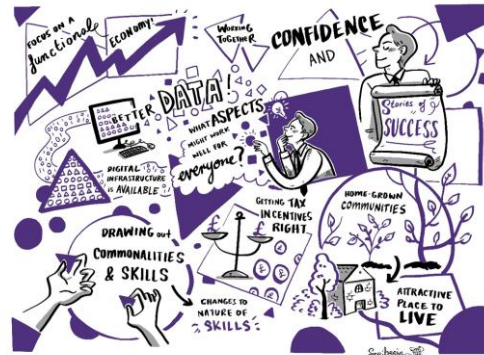 FOCUS ON A
functional
ECONOMY!
WORKING
TOGETHER
CONFIDENCE
AND
Stories of
SUCCESS
BETTER
DATA!
WHAT ASPECTS
MIGHT WORK
WELL FOR
everyone?
DIGITAL
INFRASTRUCTURE
is AVAILABLE
GETTING TAX
INCENTIVES
RIGHT
HOME-GROWN
COMMUNITIES
DRAWING out
COMMONALITIES
& SKILLS
CHANGES TO
NATURE OF
SKILLS
ATTRACTIVE
PLACE TO
LIVE